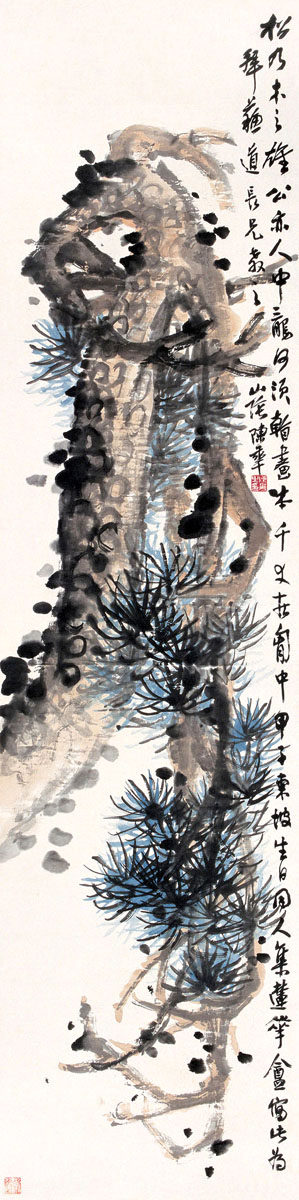 松乃木之雄公亦人中龍何須翰畫本千丈在胸中甲子東坡生日同人集蓮華盦寫此為
拜蘇道長兄教之
山陰陳年